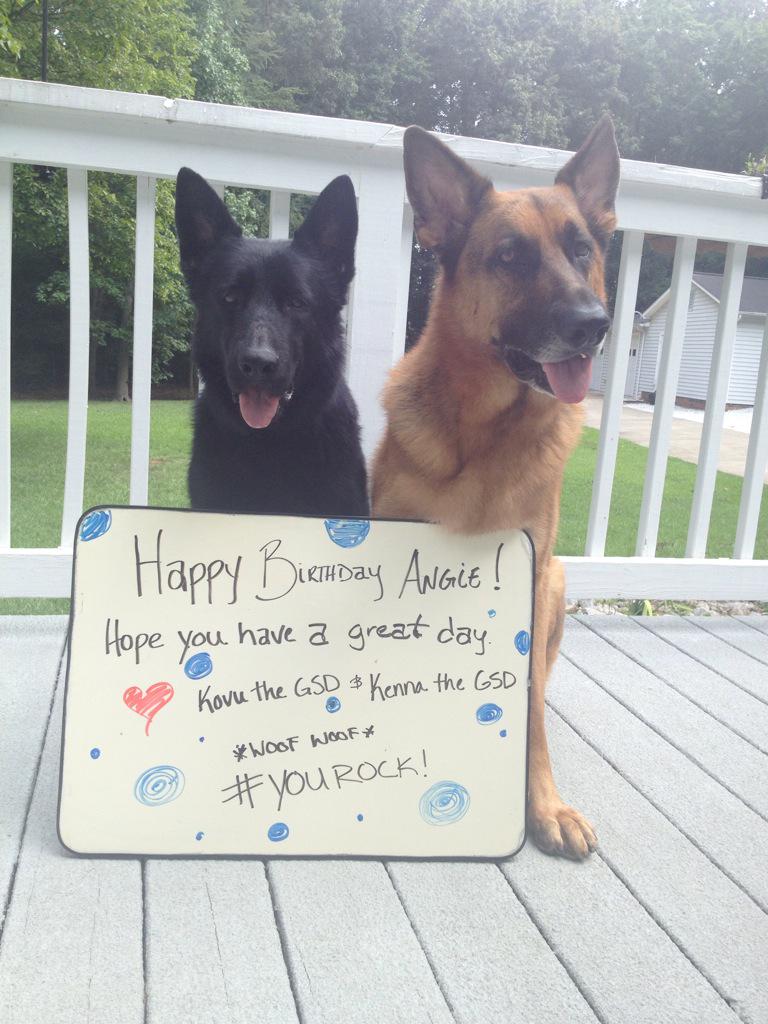 Happy Birthday Angie!
Hope you have a great day.
Kovu the GSD & Kenna the GSD
*WOOF WOOF*
#YOUROCK!